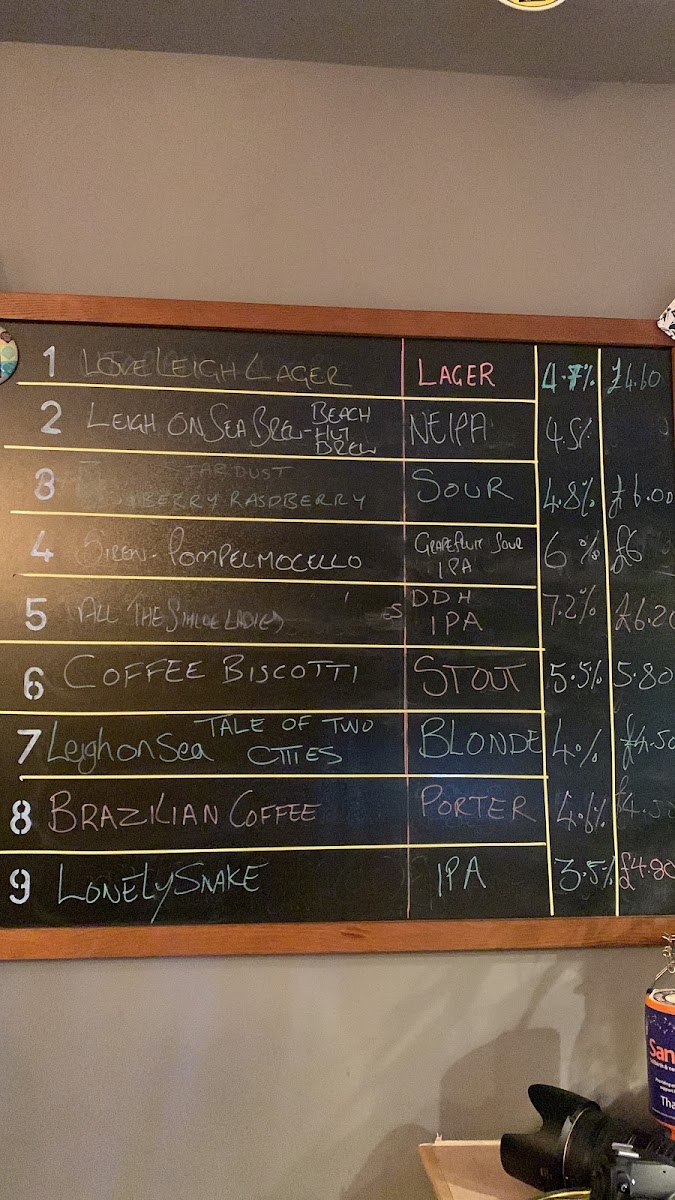 1 LOVE LEIGH LAGER LAGER 4.7% £4.60
2 LEIGH ON SEA BREW - BEACH HUT BREW NEIPA 4.5%
3 STARDUST BERRY RASDBERRY SOUR 4.8% £6.00
4 SIREN - POMPELMOCELLO GRAPEFRUIT SOUR IPA 6% £6
5 ALL THE LADIES DDH IPA 7.2% £6.20
6 COFFEE BISCOTTI STOUT 5.5% 5.80
7 Leigh on Sea TALE OF TWO CITIES BLONDE 4% £4.50
8 BRAZILIAN COFFEE PORTER 4.6% £4.50
9 LONELY SNAKE IPA 3.5% £4.80
San
Tha